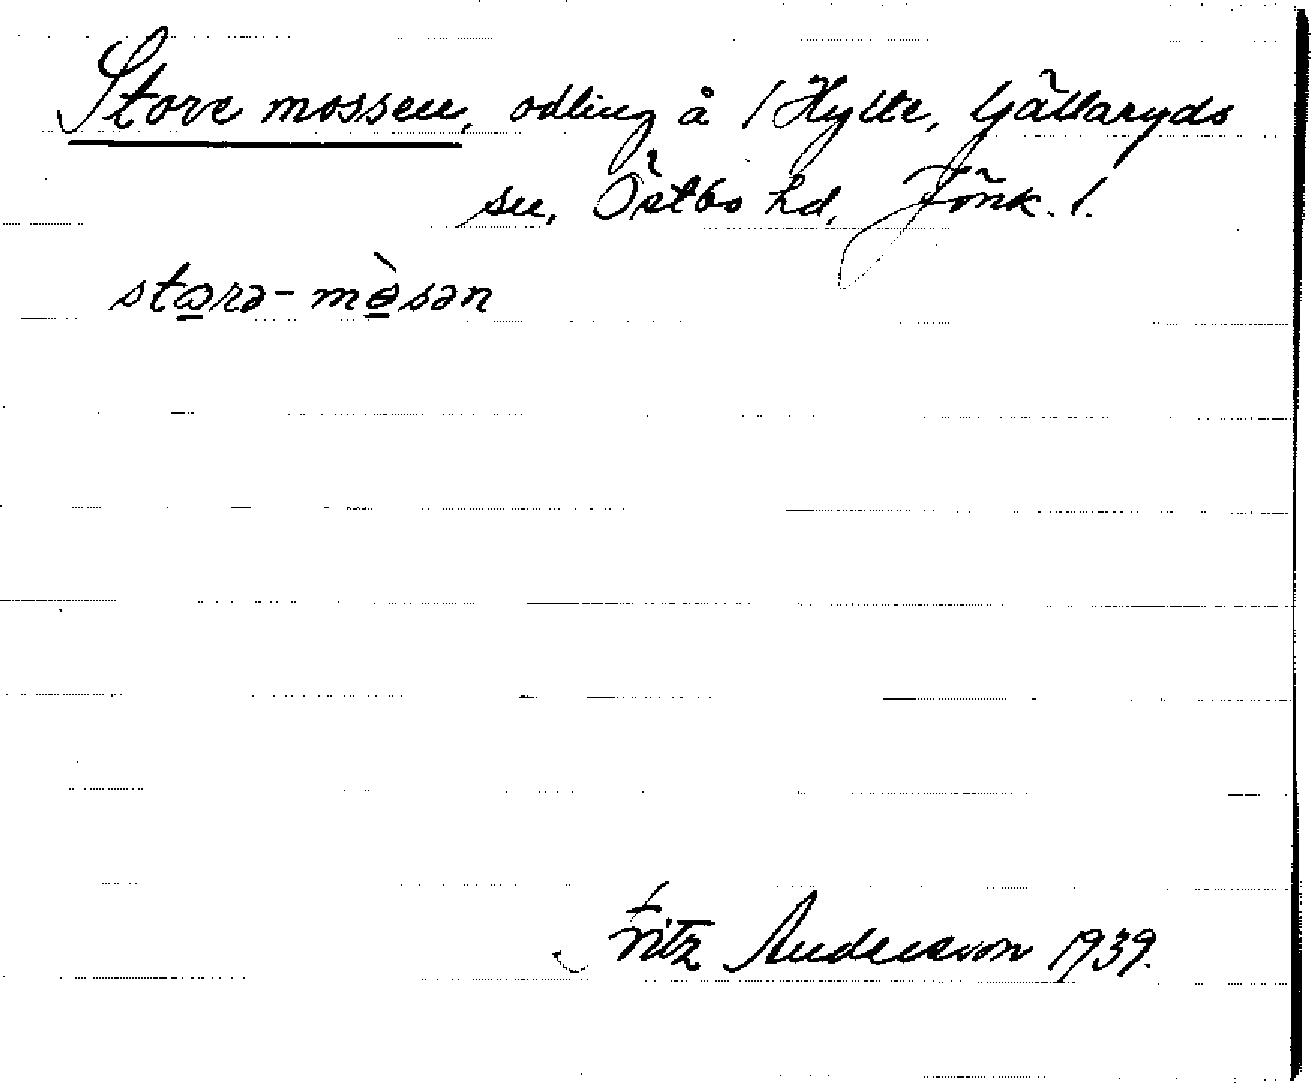 Store mossen, odling å /Hylte, Gällaryds
sn, Östbo hd, Jönk. l.
storə-mòsən
Fritz Andersson 1939.